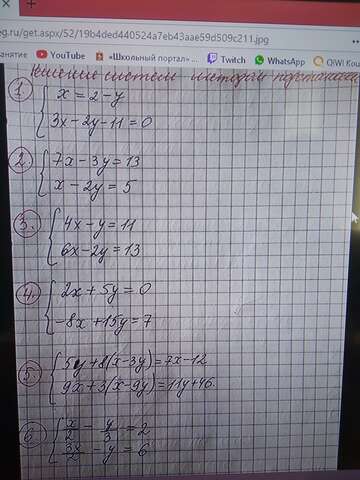 eg.ru/get.aspx/52/19b4ded440524a7eb43aae59d509c211.jpg
YouTube «Школьный портал» ... Twitch WhatsApp QIWI Ко
Решение систем методом подстановки
1 { x = 2 - y
3x - 2y - 11 = 0
2. { 7x - 3y = 13
x - 2y = 5
3. { 4x - y = 11
6x - 2y = 13
4. { 2x + 5y = 0
-8x + 15y = 7
5. { 5y + 8(x - 3y) = 7x - 12
9x + 3(x - 9y) = 11y + 46.
6 { x/2 - y/3 = 2
3x/2 - y = 6